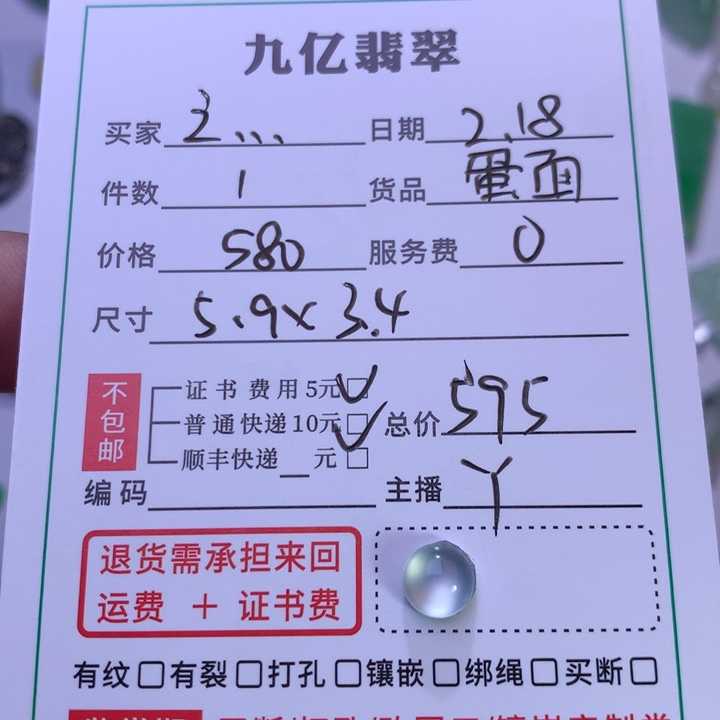 九亿翡翠
买家 3、、、 日期 2.18
件数 1 货品 蛋面
价格 580 服务费 0
尺寸 5.9x3.4
不包邮
证书费用5元☑
普通快递10元☑ 总价 595
顺丰快递__元□
编码 主播 丫
退货需承担来回
运费 + 证书费
有纹□有裂□打孔□镶嵌□绑绳□买断□